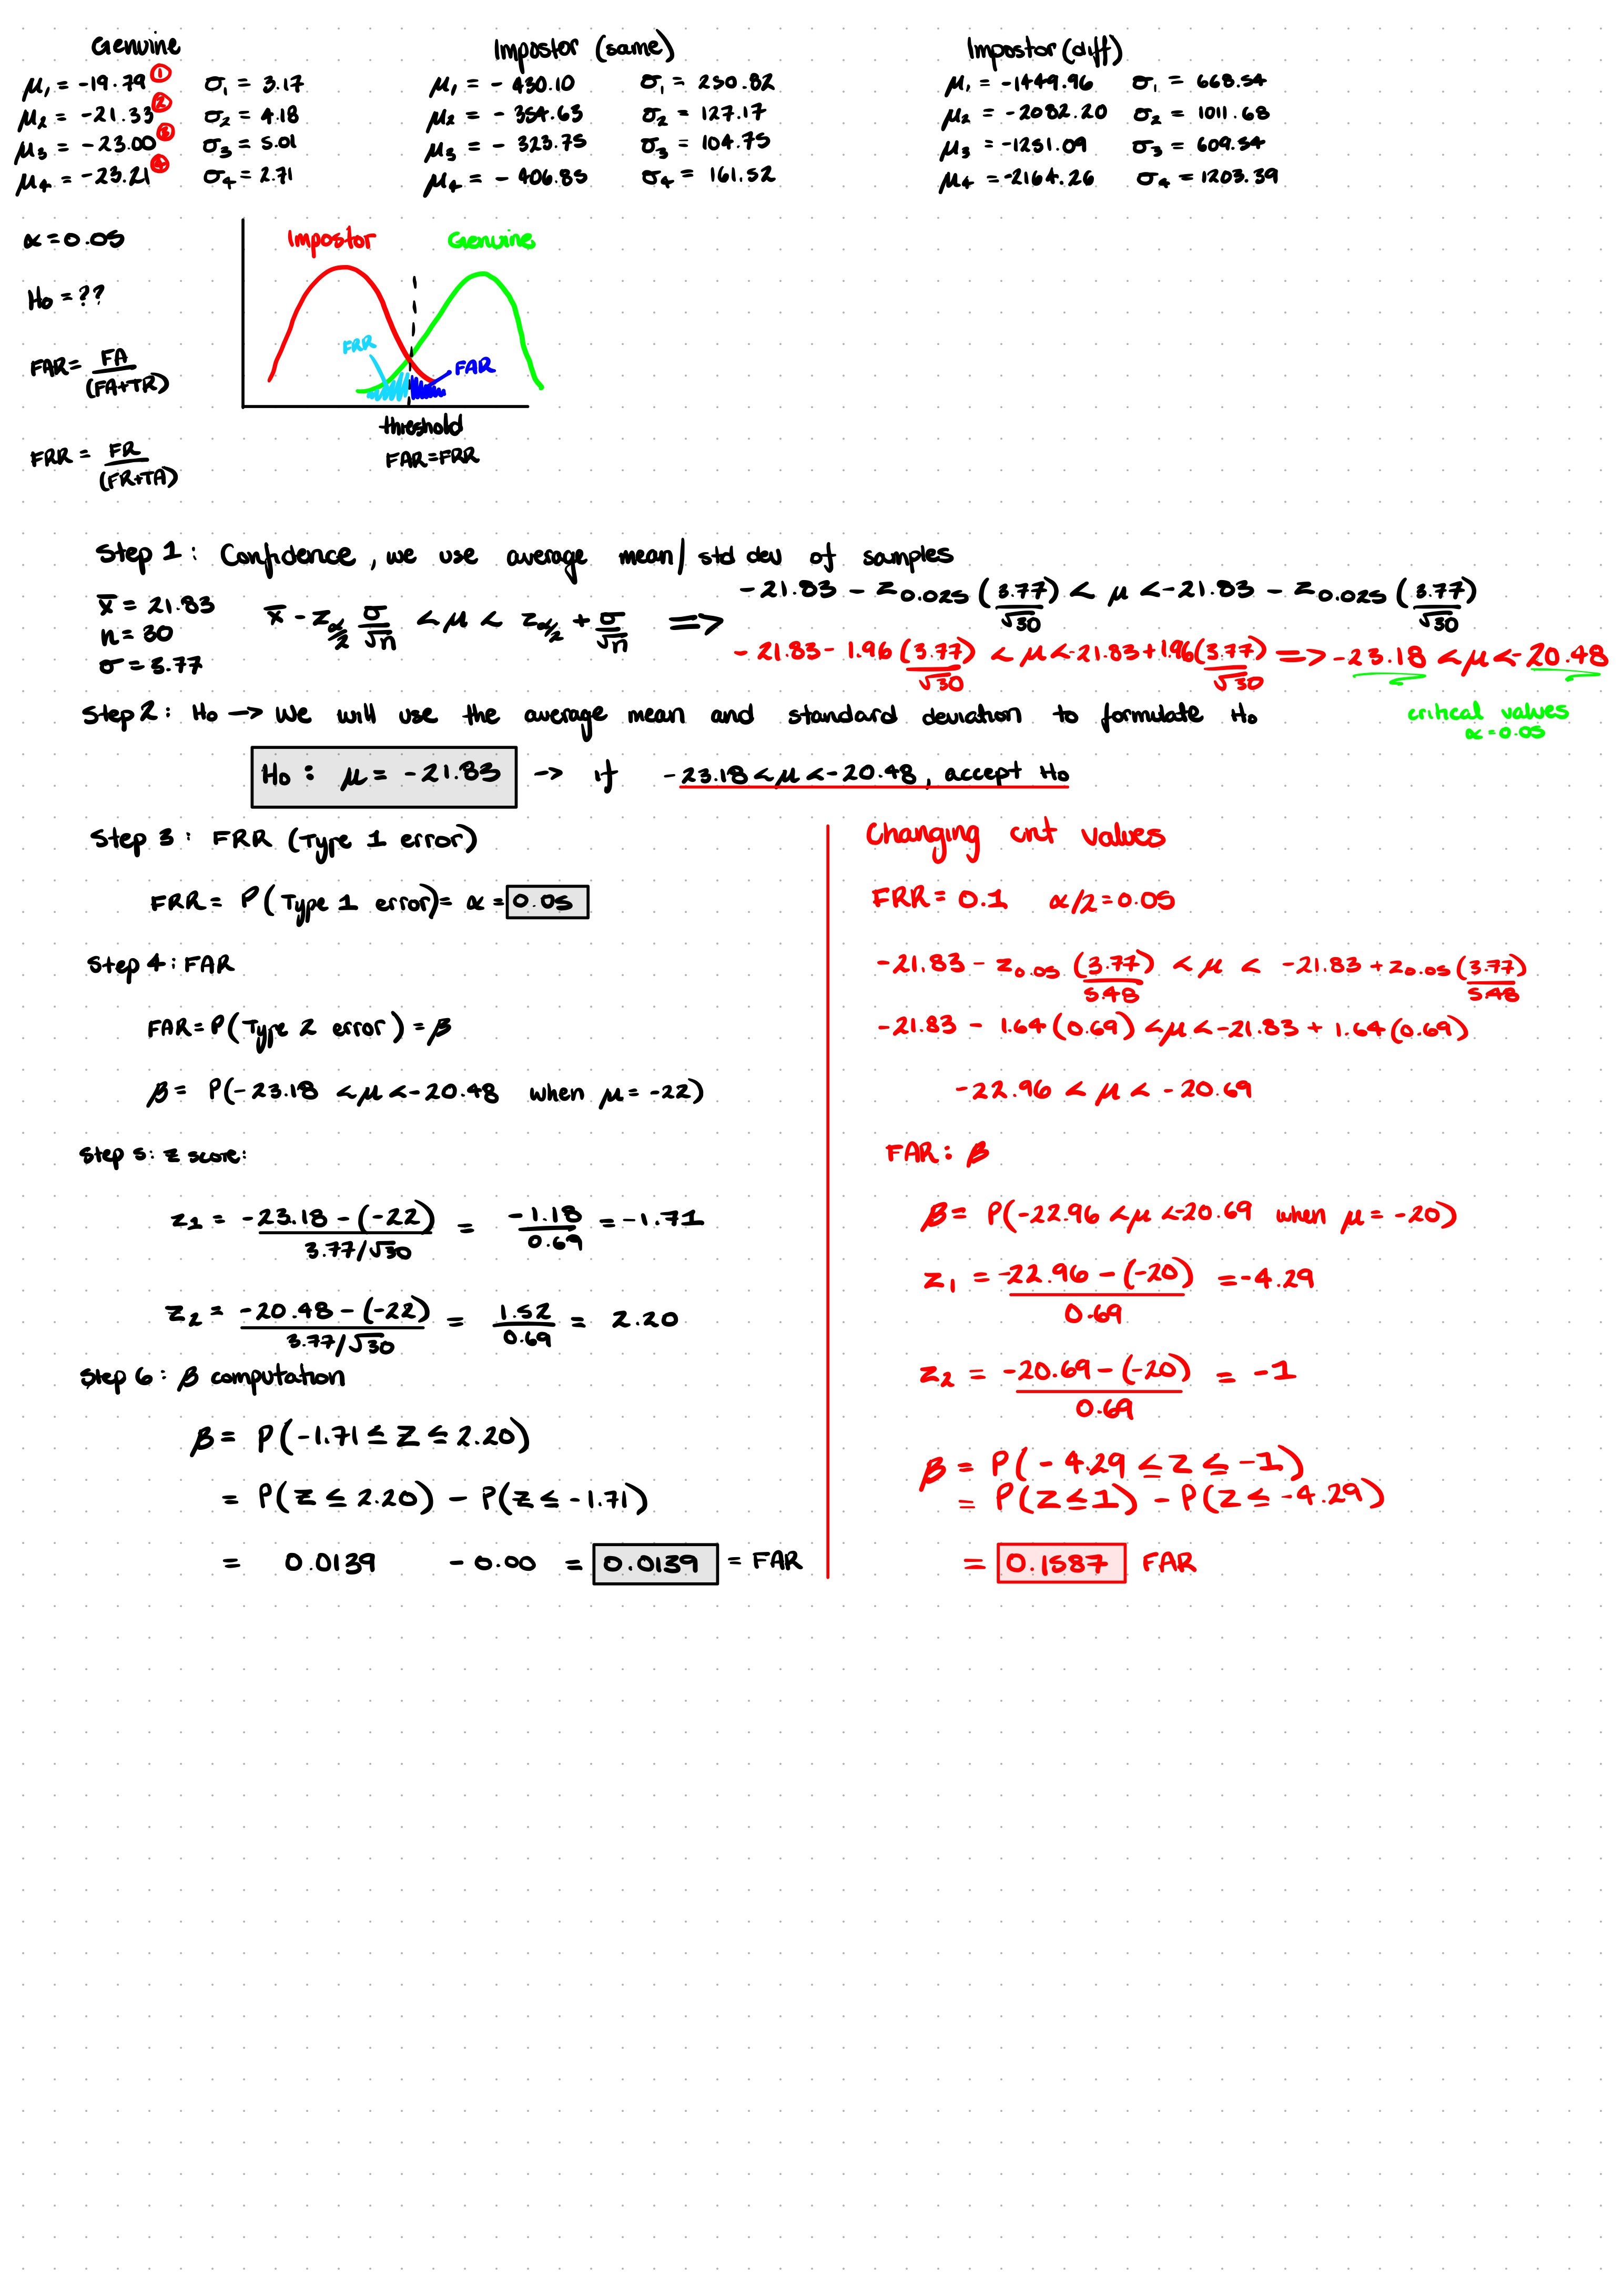 Genuine
μ₁ = -19.79 ① σ₁ = 3.17
μ₂ = -21.33 ② σ₂ = 4.18
μ₃ = -23.00 ③ σ₃ = 5.01
μ₄ = -23.21 ④ σ₄ = 2.71
Impostor (same)
μ₁ = - 430.10 σ₁ = 250.82
μ₂ = - 354.63 σ₂ = 127.17
μ₃ = - 323.75 σ₃ = 104.75
μ₄ = - 406.85 σ₄ = 161.52
Impostor (diff)
μ₁ = -1449.96 σ₁ = 668.54
μ₂ = -2082.20 σ₂ = 1011.68
μ₃ = -1251.09 σ₃ = 609.54
μ₄ = -2164.26 σ₄ = 1203.39
α = 0.05
H₀ = ??
FAR = FA/(FA+TR)
FRR = FR/(FR+TA)
Impostor Genuine
FRR FAR
threshold
FAR=FRR
Step 1: Confidence, we use average mean/std dev of samples
x̄ = 21.83
n = 30
σ = 3.77
x̄ - z_α/2 σ/√n < μ < z_α/2 + σ/√n => -21.83 - z₀.₀₂₅ (3.77/√30) < μ < -21.83 - z₀.₀₂₅ (3.77/√30)
-21.83 - 1.96 (3.77/√30) < μ < -21.83 + 1.96 (3.77/√30) => -23.18 < μ < -20.48
critical values
α = 0.05
Step 2: H₀ → We will use the average mean and standard deviation to formulate H₀
H₀ : μ = -21.83 → if -23.18 < μ < -20.48, accept H₀
Step 3: FRR (Type 1 error)
FRR = P(Type 1 error) = α = 0.05
Step 4: FAR
FAR = P(Type 2 error) = β
β = P(-23.18 < μ < -20.48 when μ = -22)
Step 5: z score:
z₁ = -23.18 - (-22) / 3.77/√30 = -1.18/0.69 = -1.71
z₂ = -20.48 - (-22) / 3.77/√30 = 1.52/0.69 = 2.20
Step 6: β computation
β = P(-1.71 ≤ Z ≤ 2.20)
= P(Z ≤ 2.20) - P(Z ≤ -1.71)
= 0.0139 - 0.00 = 0.0139 = FAR
Changing crit values
FRR = 0.1 α/2 = 0.05
-21.83 - z₀.₀₅ (3.77/5.48) < μ < -21.83 + z₀.₀₅ (3.77/5.48)
-21.83 - 1.64(0.69) < μ < -21.83 + 1.64(0.69)
-22.96 < μ < -20.69
FAR: β
β = P(-22.96 < μ < -20.69 when μ = -20)
z₁ = -22.96 - (-20) / 0.69 = -4.29
z₂ = -20.69 - (-20) / 0.69 = -1
β = P(-4.29 ≤ z ≤ -1)
= P(Z ≤ 1) - P(Z ≤ -4.29)
= 0.1587 FAR